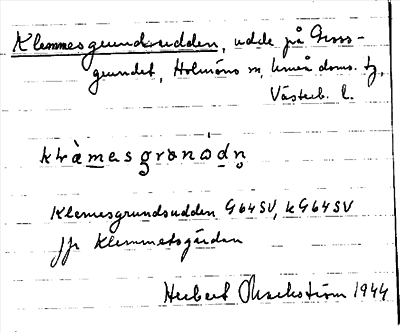 Klemmesgrundsudden, udde på Gross-
grundet, Holmöns sn, Umeå doms. tg,
Västerb. l.
Klemesgrundsudden G64SV, kG64SV
jfr Klemmetsgården
Herbert Markström 1944